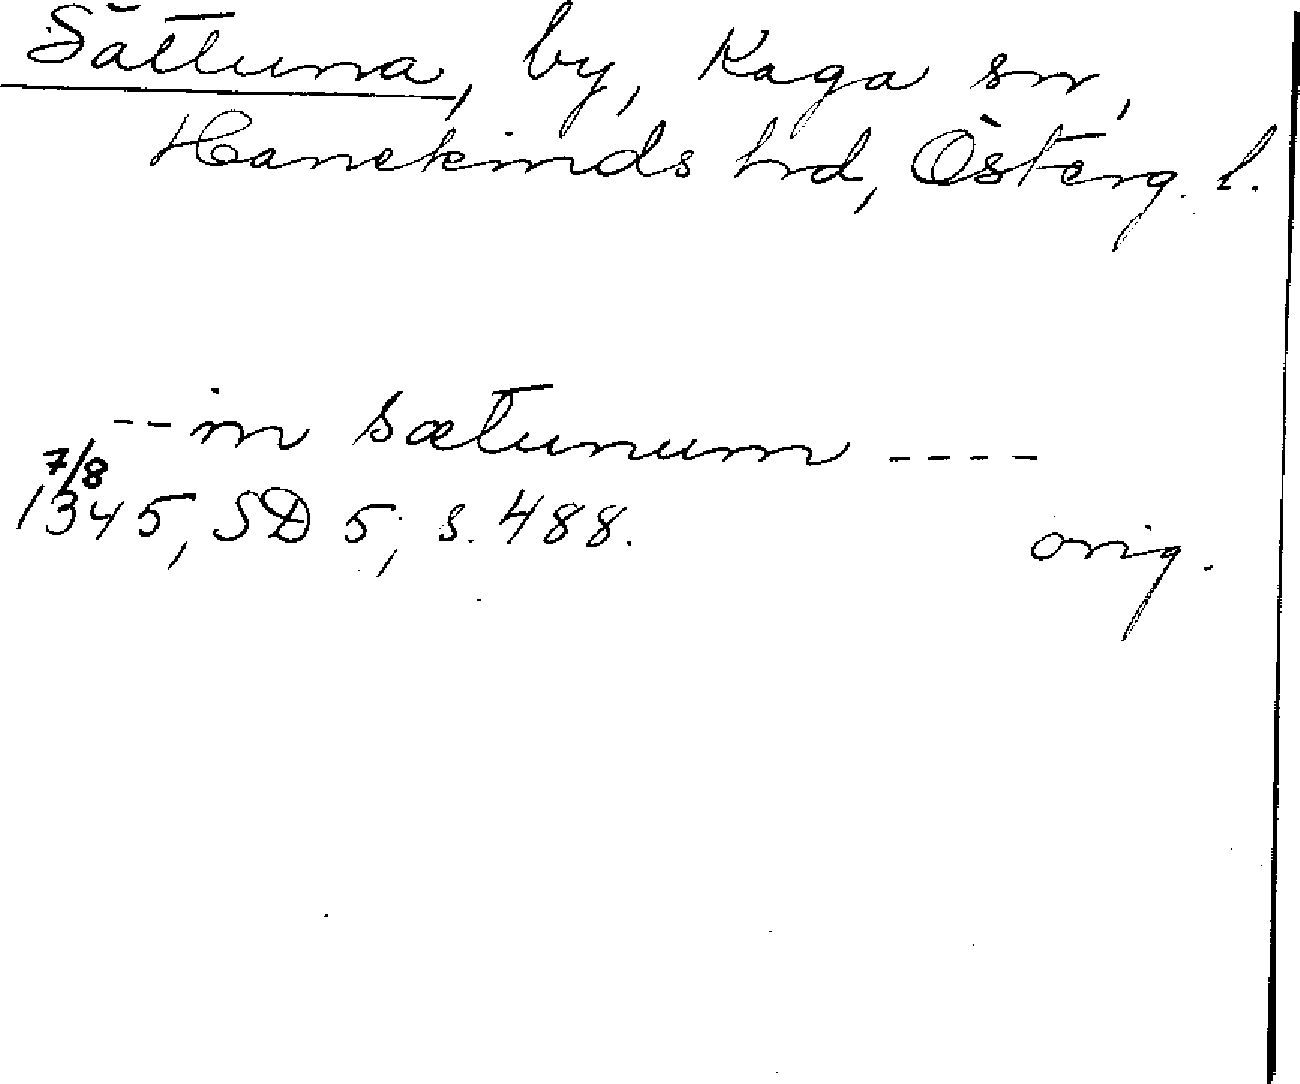 Sättuna, by, Kaga sn,
Hanekinds hrd, Österg. l.
-- in sætunum ----
7/8
1345, SD 5, s. 488.
orig.